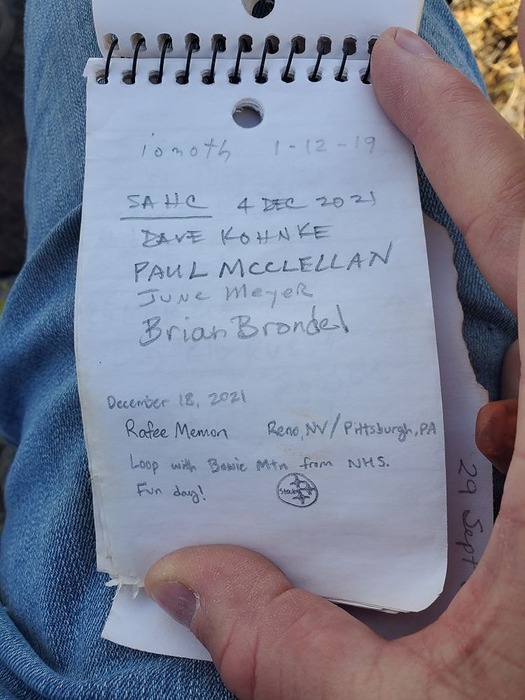 iomoth 1-12-19
SAHC 4 DEC 2021
DAVE KOHNKE
PAUL MCCLELLAN
June Meyer
Brian Brondel
December 18, 2021
Rafee Memon Reno, NV/Pittsburgh, PA
Loop with Bowie Mtn from NHS.
Fun day!
29 Sept